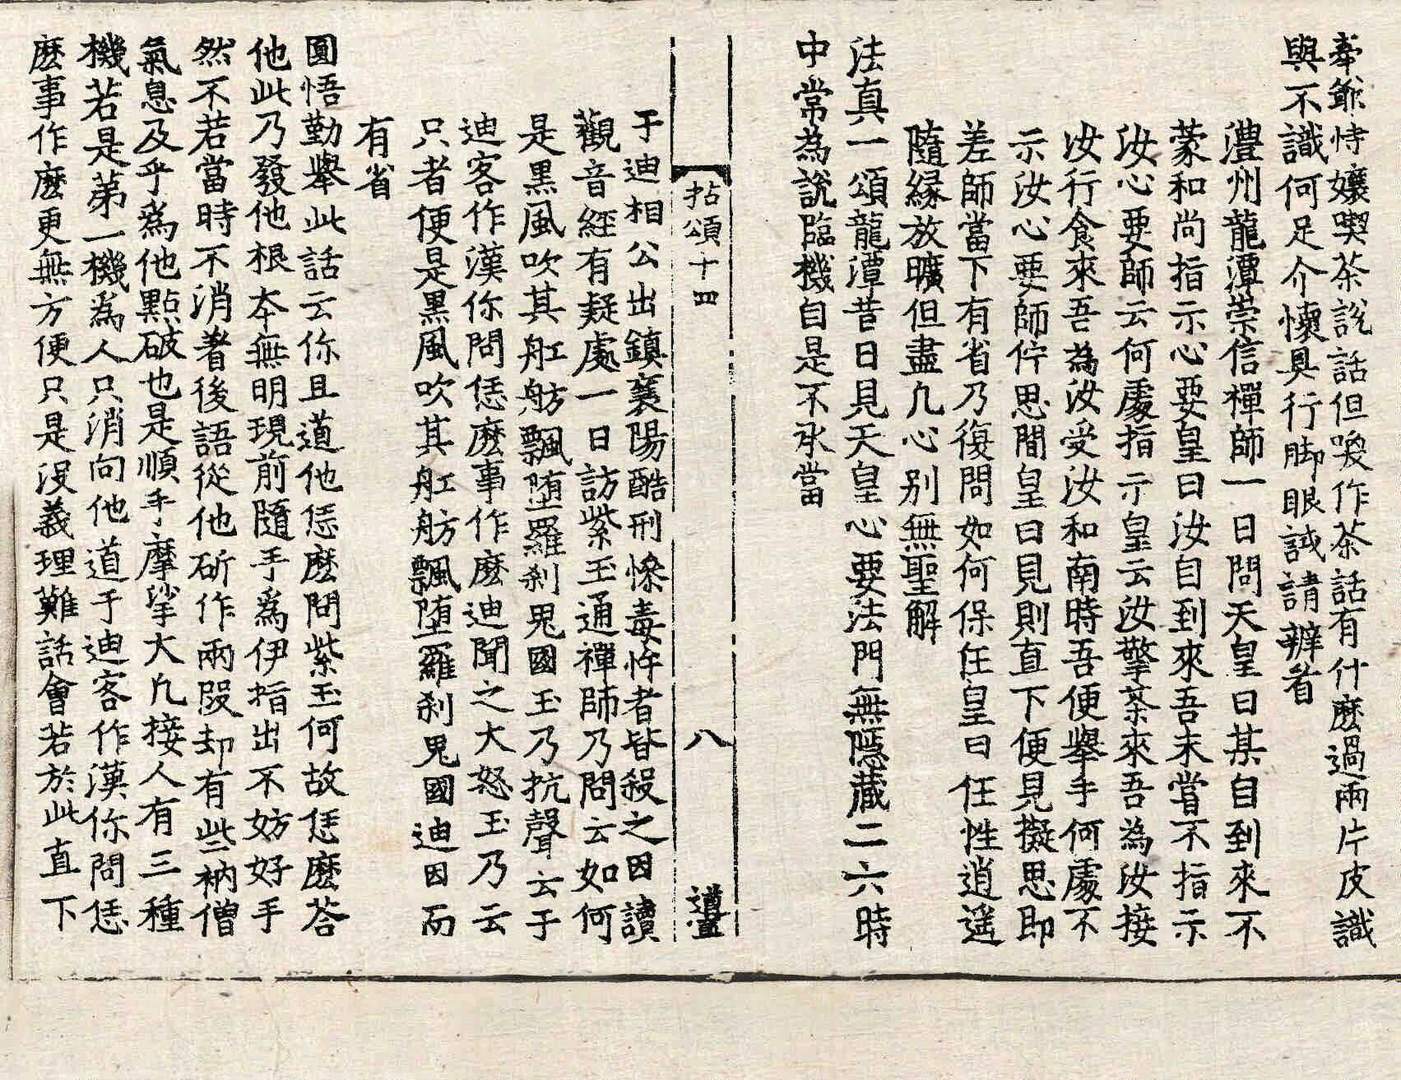 牽爺恃孃喫茶說話但喚作茶話有什麽過兩片皮識
與不識何足介懷具行脚眼試請辨看
澧州龍潭崇信禪師一日問天皇曰某自到來不
蒙和尚指示心要皇曰汝自到來吾未嘗不指示
汝心要師云何處指示皇云汝擎茶來吾為汝接
汝行食來吾為汝受汝和南時吾便舉手何處不
示汝心要師佇思間皇曰見則直下便見擬思即
差師當下有省乃復問如何保任皇曰任性逍遥
隨緣放曠但盡凡心别無聖解
法真一頌龍潭昔日見天皇心要法門無隱藏二六時
中常為說臨機自是不承當
拈頌十四 八
于迪相公出鎮襄陽酷刑慘毒忤者皆殺之因讀
觀音經有疑處一日訪紫玉通禪師乃問云如何
是黑風吹其舡舫飄堕羅刹鬼國玉乃抗聲云于
迪客作漢你問恁麽事作麽迪聞之大怒玉乃云
只者便是黑風吹其舡舫飄堕羅刹鬼國迪因而
有省
圓悟勤舉此話云你且道他恁麽問紫玉何故恁麽荅
他此乃發他根本無明現前隨手爲伊指出不妨好手
然不若當時不消着後語從他斫作兩段却有些衲僧
氣息及乎爲他點破也是順手摩挲大凡接人有三種
機若是第一機為人只消向他道于迪客作漢你問恁
麽事作麽更無方便只是没義理難話會若於此直下